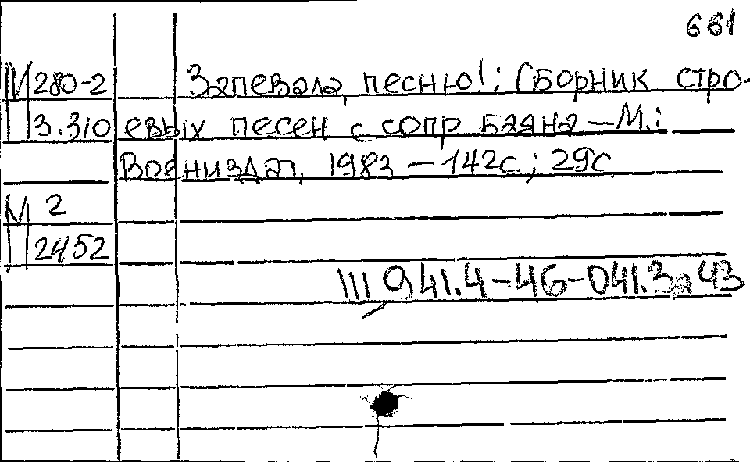 661
М 280-2 Запевала, песню!: Сборник стро-
3.310 евых песен с сопр баяна — М.:
Воениздат, 1983 — 142с; 29с
М 2
2452
Ш 941.4-46-041.3я43